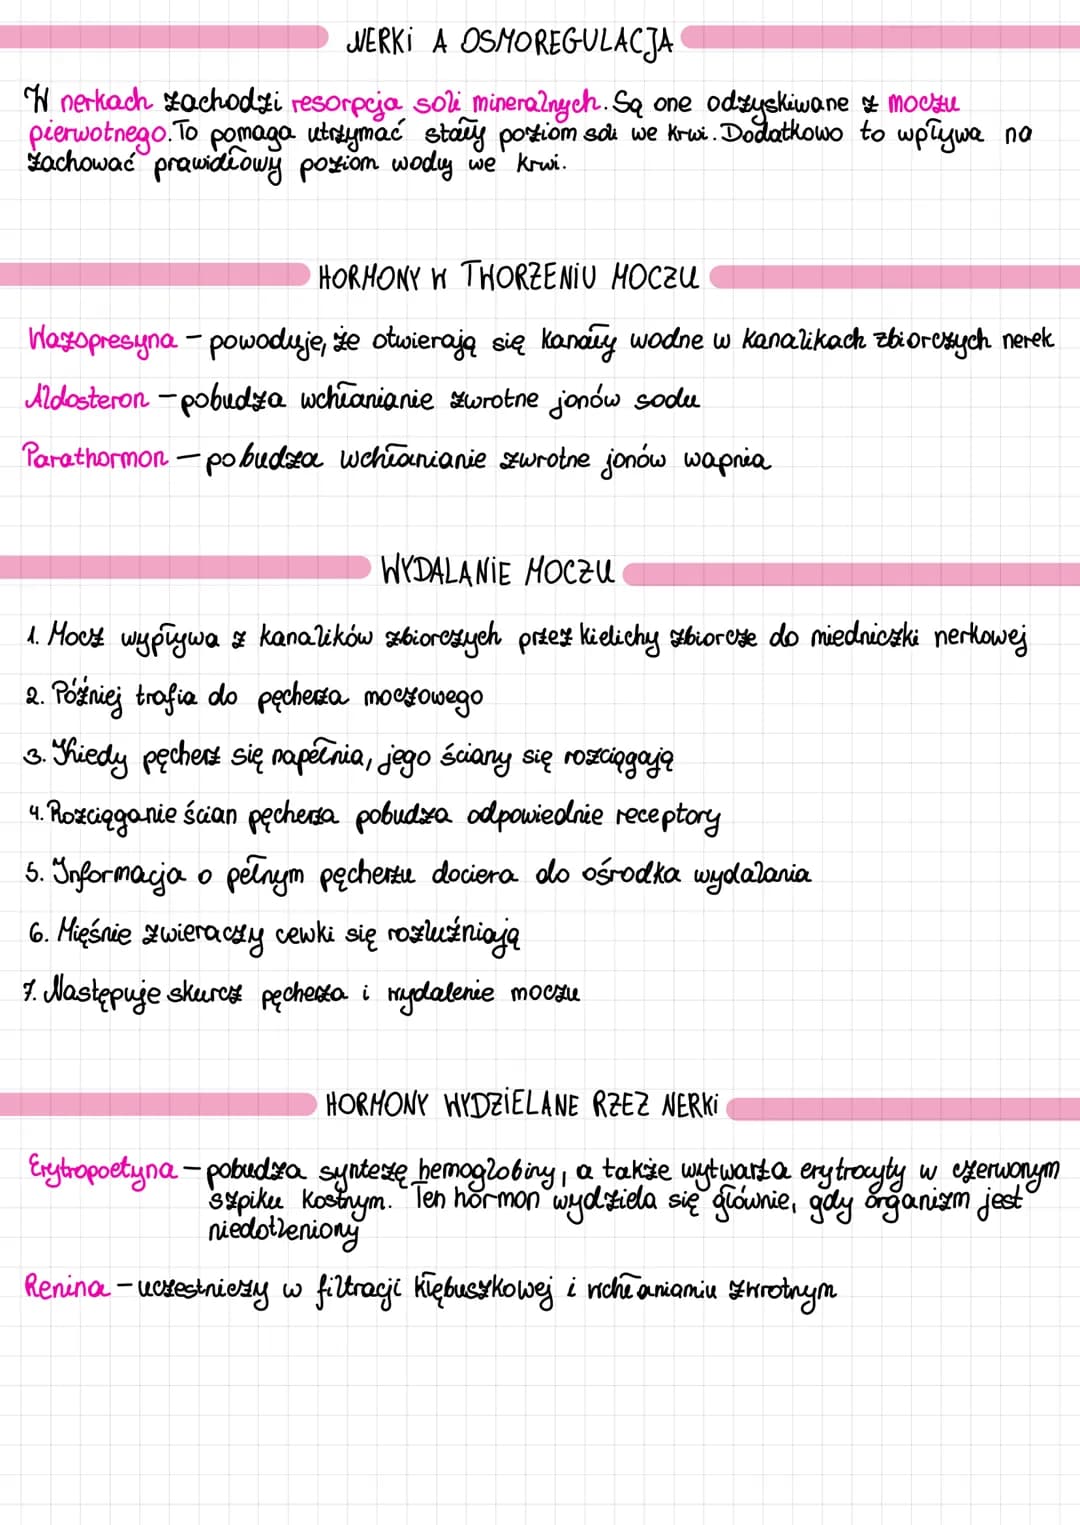 NERKI A OSMOREGULACJA
W nerkach zachodzi resorpcja soli mineralnych. Są one odzyskiwane z moczu
pierwotnego. To pomaga utrzymać stały poziom soli we krwi. Dodatkowo to wpływa na
zachować prawidłowy poziom wody we krwi.
HORMONY W TWORZENIU MOCZU
Wazopresyna - powoduje, że otwierają się kanały wodne w kanalikach zbiorczych nerek
Aldosteron - pobudza wchłanianie zwrotne jonów sodu
Parathormon - pobudza wchłanianie zwrotne jonów wapnia
WYDALANIE MOCZU
1. Mocz wypływa z kanalików zbiorczych przez kielichy zbiorcze do miedniczki nerkowej
2. Później trafia do pęcherza moczowego
3. Kiedy pęcherz się napełnia, jego ściany się rozciągają
4. Rozciąganie ścian pęcherza pobudza odpowiednie receptory
5. Informacja o pełnym pęcherzu dociera do ośrodka wydalania
6. Mięśnie zwieraczy cewki się rozluźniają
7. Następuje skurcz pęcherza i wydalenie moczu
HORMONY WYDZIELANE RZEZ NERKI
Erytropoetyna - pobudza syntezę hemoglobiny, a także wytwarza erytrocyty w czerwonym
szpiku kostnym. Ten hormon wydziela się głównie, gdy organizm jest
niedotleniony
Renina - uczestniczy w filtracji kłębuszkowej i wchłanianiu zwrotnym